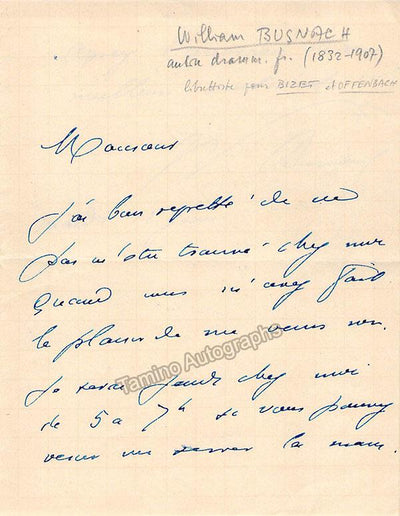 William BUSNACH
auteur dramm. fr. (1832-1907)
librettiste pour BIZET et OFFENBACH
Monsieur
J'ai bien regretté de ne
pas m'être trouvé chez moi
Quand vous m'avez fait
le plaisir de me venir voir.
Tamino Autographs
Je serai Jeudi chez moi
de 5 a 7h si vous pouvez
venir me serrer la main.